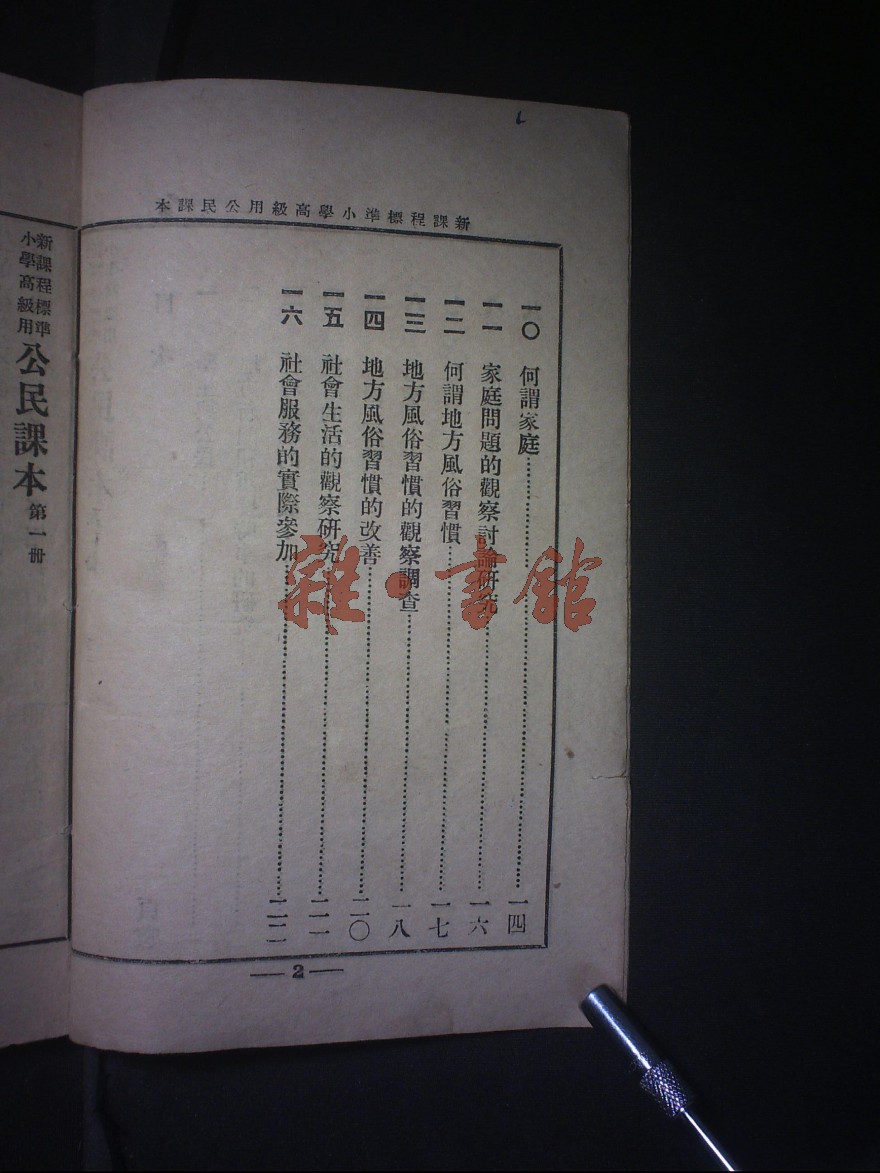 新課程標準小學高級用公民課本
一〇　何謂家庭…………一四
一一　家庭問題的觀察討論研究…………一六
一二　何謂地方風俗習慣…………一七
一三　地方風俗習慣的觀察調查…………一八
一四　地方風俗習慣的改善…………二〇
一五　社會生活的觀察研究…………二一
一六　社會服務的實際參加…………二二
— 2 —
新課程標準
小學高級用
公民課本 第一册
雜·書館